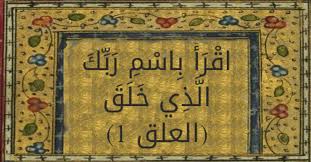 اقْرَأْ بِاسْمِ رَبِّكَ
الَّذِي خَلَقَ
(العلق 1)